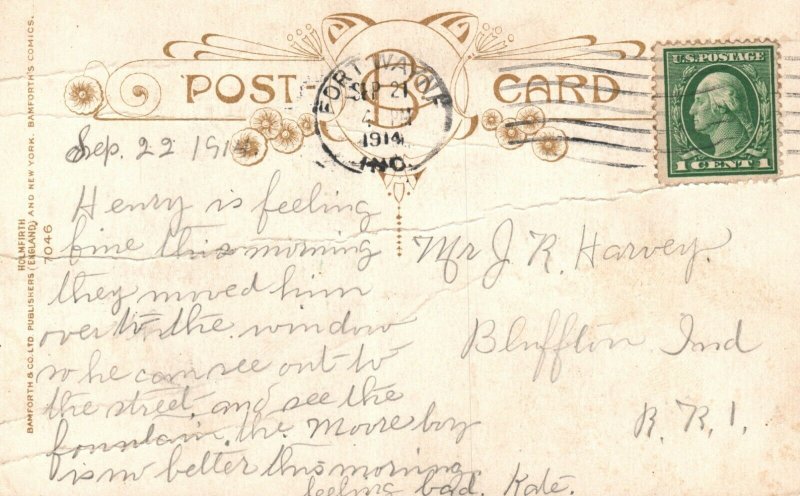 POST CARD
FORT WAYNE
SEP 21
4 PM
1914
IND.
U.S. POSTAGE
1 CENT 1
Sep. 22 1914
Henry is feeling
fine this morning
they moved him
over to the window
so he can see out to
the street, and see the
fountain. the Moore boy
is no better this morning
feeling bad. Kate.
Mr J. R. Harvey.
Bluffton Ind
R. R. 1.
BAMFORTH & CO. LTD. PUBLISHERS (ENGLAND) AND NEW YORK. BAMFORTH'S COMICS.
HOLMFIRTH
7046